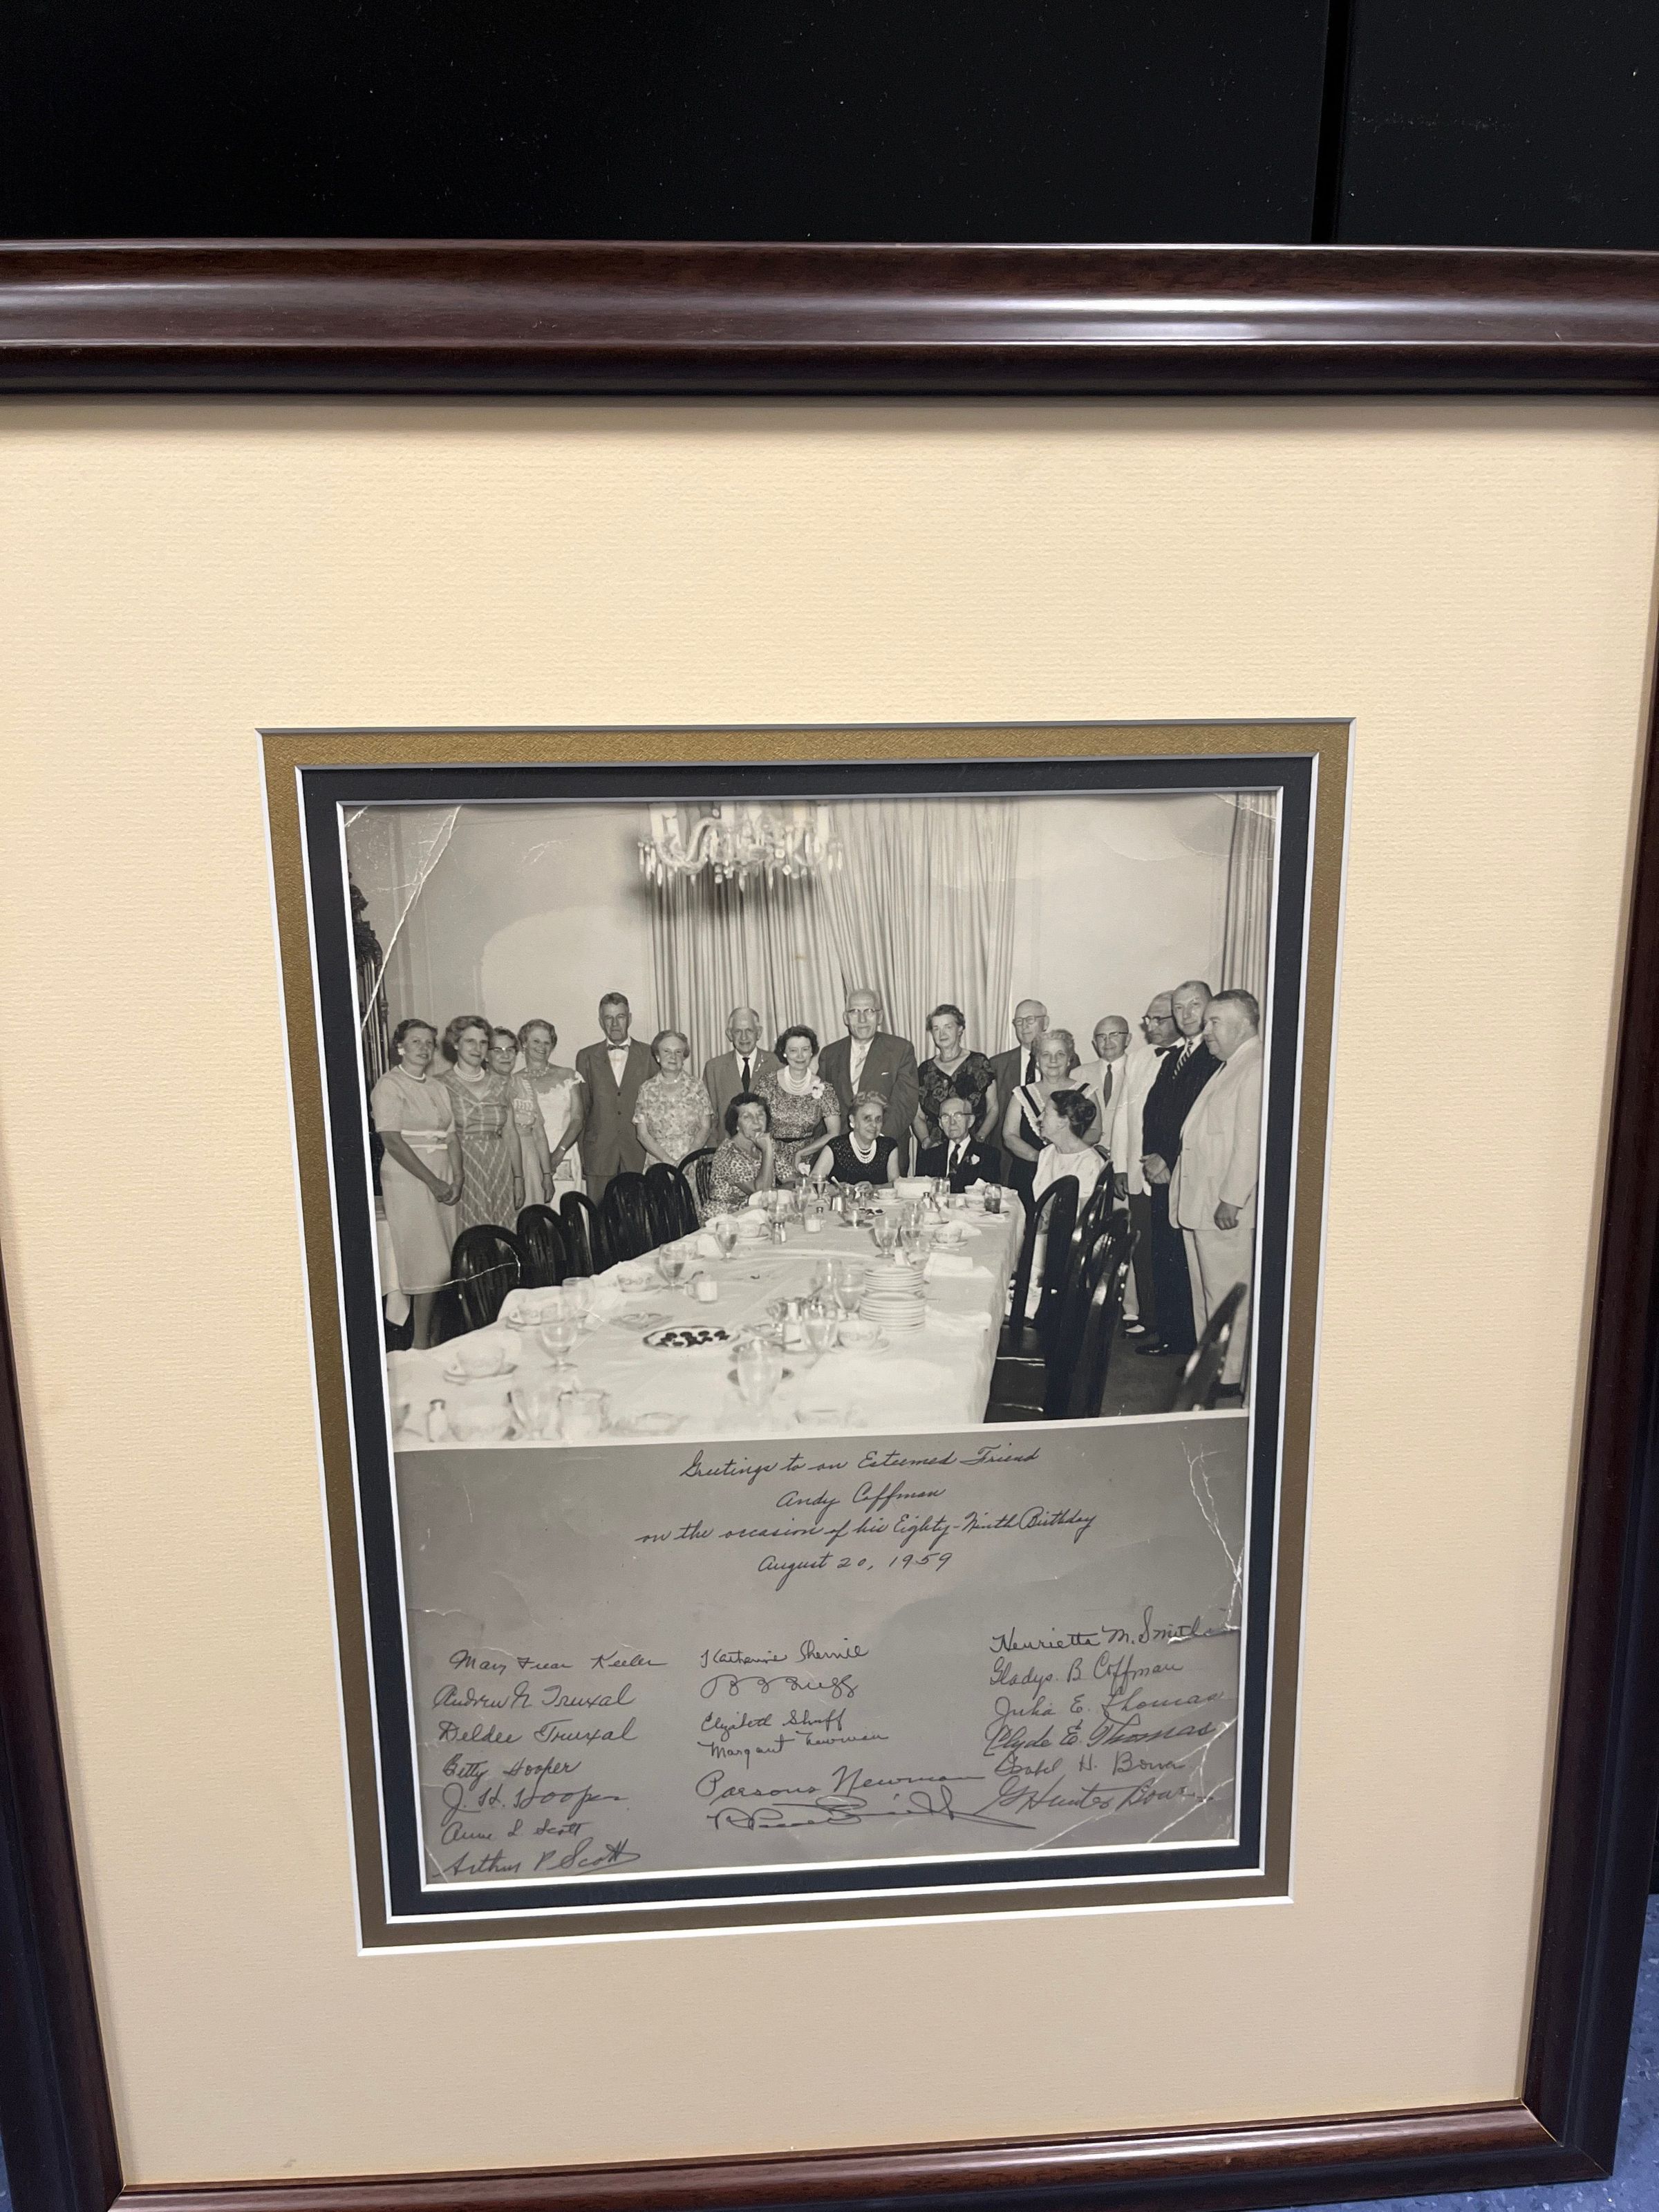 Greetings to an Esteemed Friend
Andy Coffman
on the occasion of his Eighty-Ninth Birthday
August 20, 1959
Mary Frear Keeler
Andrew G. Truxal
Deldee Truxal
Betty Hooper
J. H. Hooper
Anne L. Scott
Arthur P. Scott
Katharine
Elizabeth Shuff
Margaret Newman
Parsons Newman
Henrietta M. Smith
Gladys B Coffman
Julia E. Thomas
Clyde E. Thomas
H.
G Hunter